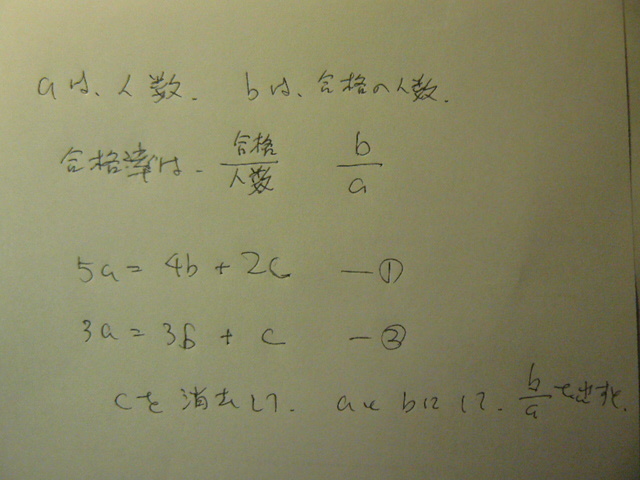 aは、人数. bは、合格の人数.
合格率は. 合格/人数 b/a
5a = 4b + 2c —①
3a = 3b + c —②
cを消去して. aとbにして. b/a を出すと.